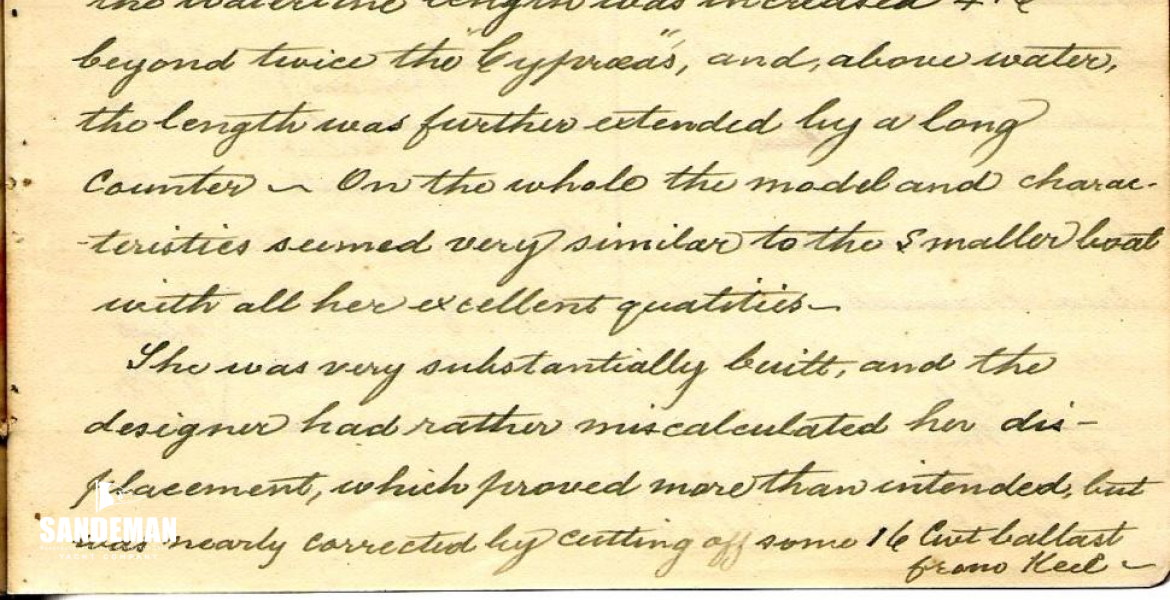 the waterline length was increased
beyond twice the "Cypræa's", and, above water,
the length was further extended by a long
counter ~ On the whole the model and charac-
-teristics seemed very similar to the smaller boat
with all her excellent qualities ~
She was very substantially built, and the
designer had rather miscalculated her dis-
placement, which proved more than intended, but
was nearly corrected by cutting off some 16 Cwt ballast
from Keel ~
SANDEMAN
YACHT COMPANY